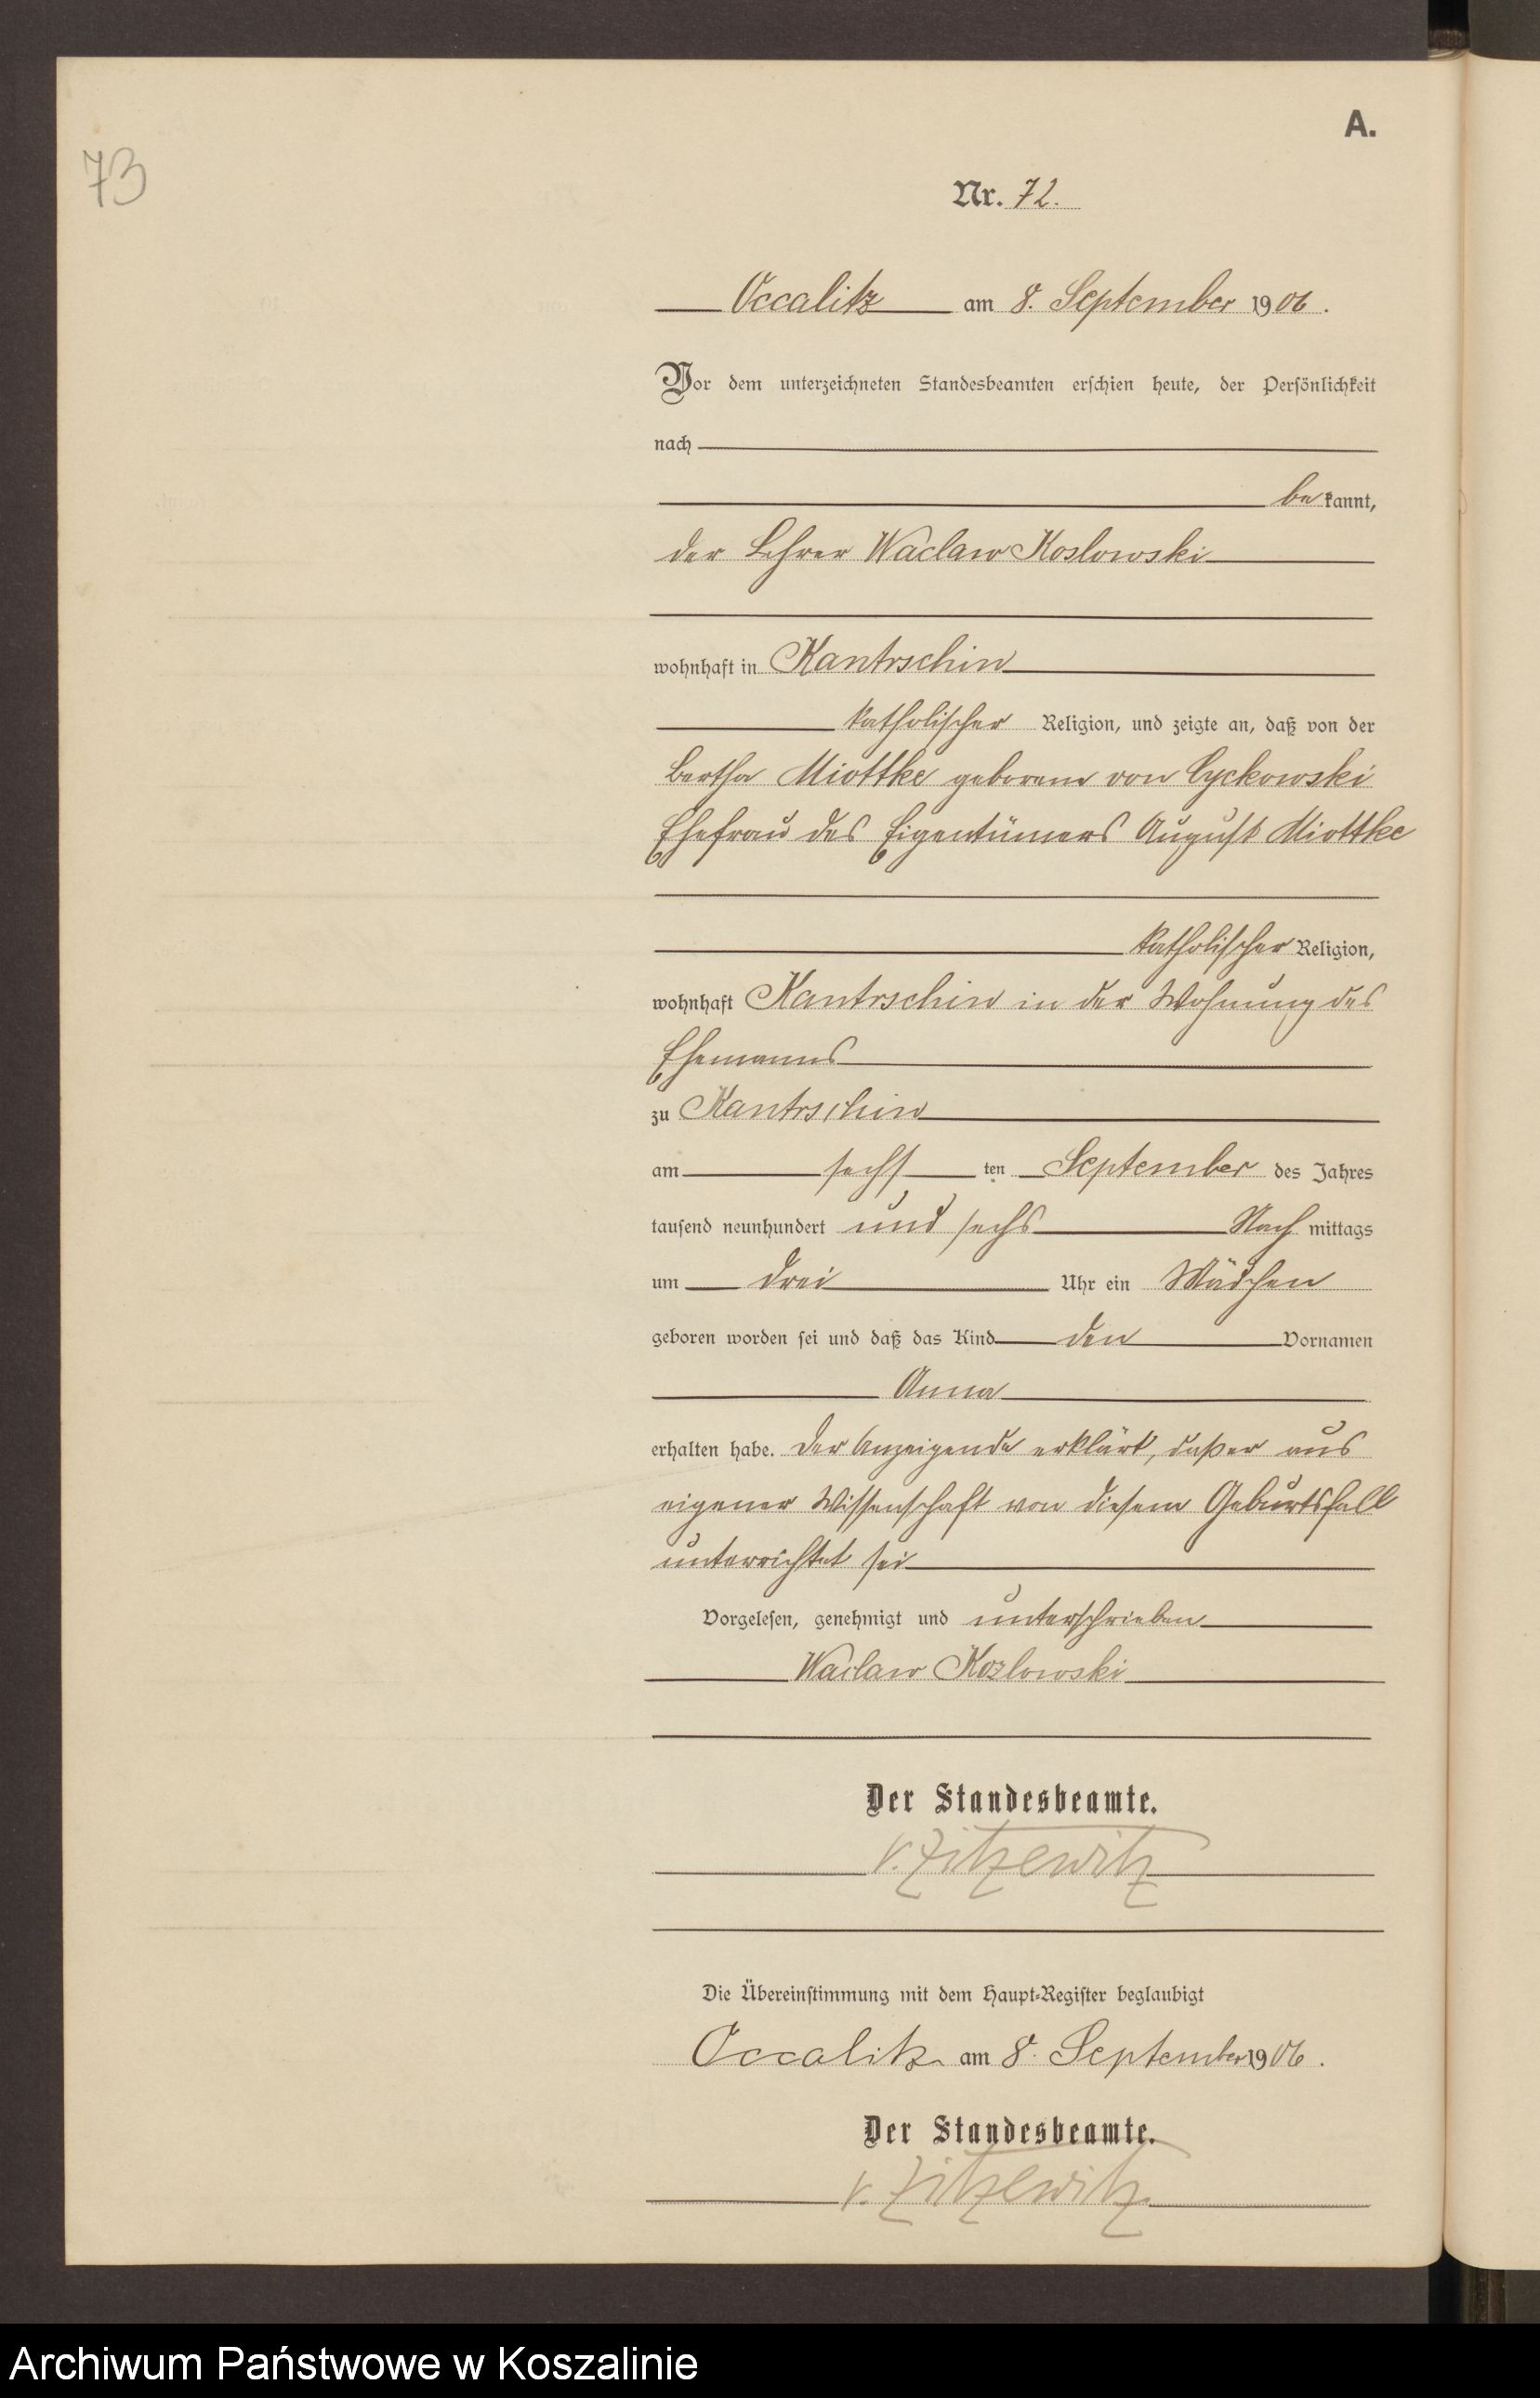 A.
73
Nr. 72.
Occalitz am 8. September 1906.
Vor dem unterzeichneten Standesbeamten erschien heute, der Persönlichkeit
nach
bekannt,
der Lehrer Waclaw Koslowski
wohnhaft in Kantrschin
katholischer Religion, und zeigte an, daß von der
Bertha Miottke geborene von Cyckowski
Ehefrau des Eigentümers August Miottke
katholischer Religion,
wohnhaft Kantrschin in der Wohnung des
Ehemanns
zu Kantrschin
am sechsten September des Jahres
tausend neunhundert und sechs Nachmittags
um drei Uhr ein Mädchen
geboren worden sei und daß das Kind den Vornamen
Anna
erhalten habe. Der Anzeigende erklärt, daß er aus
eigener Wissenschaft von diesem Geburtsfall
unterrichtet sei
Vorgelesen, genehmigt und unterschrieben
Waclaw Kozlowski
Der Standesbeamte.
v. Zitzewitz
Die Übereinstimmung mit dem Haupt-Register beglaubigt
Occalitz am 8. September 1906.
Der Standesbeamte.
v. Zitzewitz
Archiwum Państwowe w Koszalinie